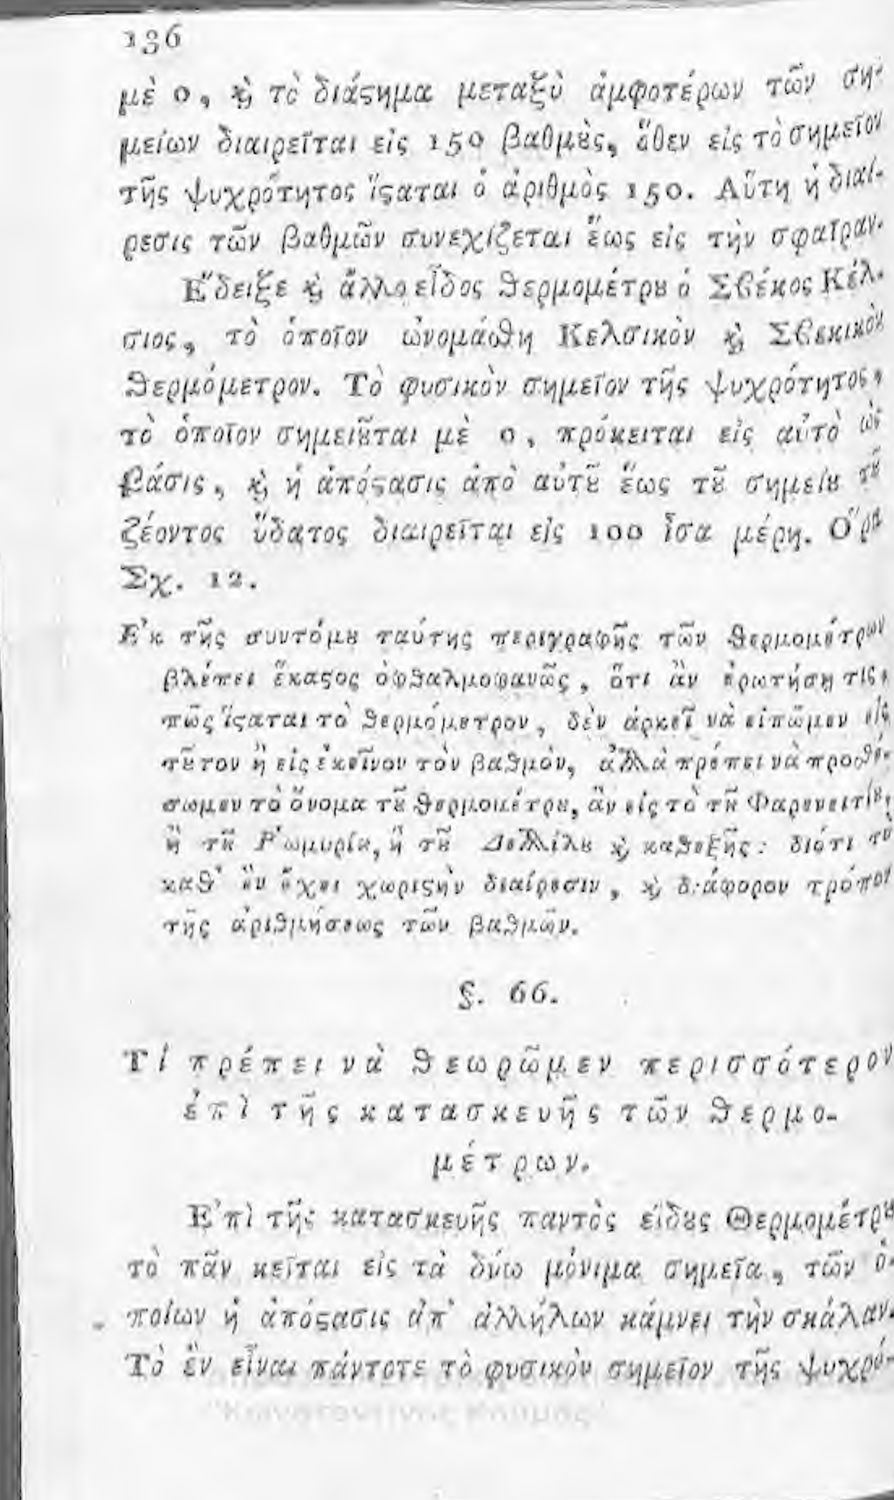 136
μὲ 0, ϗ̀ τὸ διάϛημα μεταξὺ ἀμφοτέρων τῶν ση-
μείων διαιρεῖται εἰς 150 βαθμȣ̀ς, ὅθεν εἰς τὸ σημεῖον
τῆς ψυχρότητος ἵϛαται ὁ ἀριθμὸς 150. Αὕτη ἡ διαί-
ρεσις τῶν βαθμῶν συνεχίζεται ἕως εἰς τὴν σφαῖραν.
Ἔδειξε ϗ̀ ἄλλο εἶδος ϑερμομέτρȣ ὁ Σβέκος Κέλ-
σιος, τὸ ὁποῖον ὠνομάσθη Κελσικὸν ϗ̀ Σβεκικὸν
ϑερμόμετρον. Τὸ φυσικὸν σημεῖον τῆς ψυχρότητος,
τὸ ὁποῖον σημειȣ͂ται μὲ 0, πρόκειται εἰς αὐτὸ ὡς
βάσις, ϗ̀ ἡ ἀπόϛασις ἀπὸ αὐτȣ͂ ἕως τȣ͂ σημείȣ τȣ͂
ζέοντος ὕδατος διαιρεῖται εἰς 100 ἴσα μέρη. Ὅρα
Σχ. 12.
Ἐκ τῆς συντόμȣ ταύτης περιγραφῆς τῶν ϑερμομέτρων
βλέπει ἕκαϛος ὀφϑαλμοφανῶς, ὅτι ἂν ἐρωτήσῃ τις,
πῶς ἵϛαται τὸ ϑερμόμετρον, δὲν ἀρκεῖ νὰ εἰπῶμεν εἰς
τȣ͂τον ἢ εἰς ἐκεῖνον τὸν βαϑμὸν, ἀλλὰ πρέπει νὰ προσϑέ-
σωμεν τὸ ὄνομα τȣ͂ ϑερμομέτρȣ, ἂν εἰς τὸ τȣ͂ Φαρενειτίȣ,
ἢ τȣ͂ Ῥωμυρίȣ, ἢ τȣ͂ Δελλίλȣ ϗ̀ καϑεξῆς: διότι τὸ
καθ' ἓν ἔχει χωριϛὴν διαίρεσιν, ϗ̀ διάφορον τρόπον
τῆς ἀριϑμήσεως τῶν βαϑμῶν.
§. 66.
Τί πρέπει νὰ ϑεωρῶμεν περισσότερον
ἐπὶ τῆς κατασκευῆς τῶν ϑερμο-
μέτρων.
Ἐπὶ τῆς κατασκευῆς παντὸς εἴδȣς Θερμομέτρȣ
τὸ πᾶν κεῖται εἰς τὰ δύω μόνιμα σημεῖα, τῶν ὁ-
ποίων ἡ ἀπόϛασις ἀπ' ἀλλήλων κάμνει τὴν σκάλαν.
Τὸ ἓν εἶναι πάντοτε τὸ φυσικὸν σημεῖον τῆς ψυχρό-